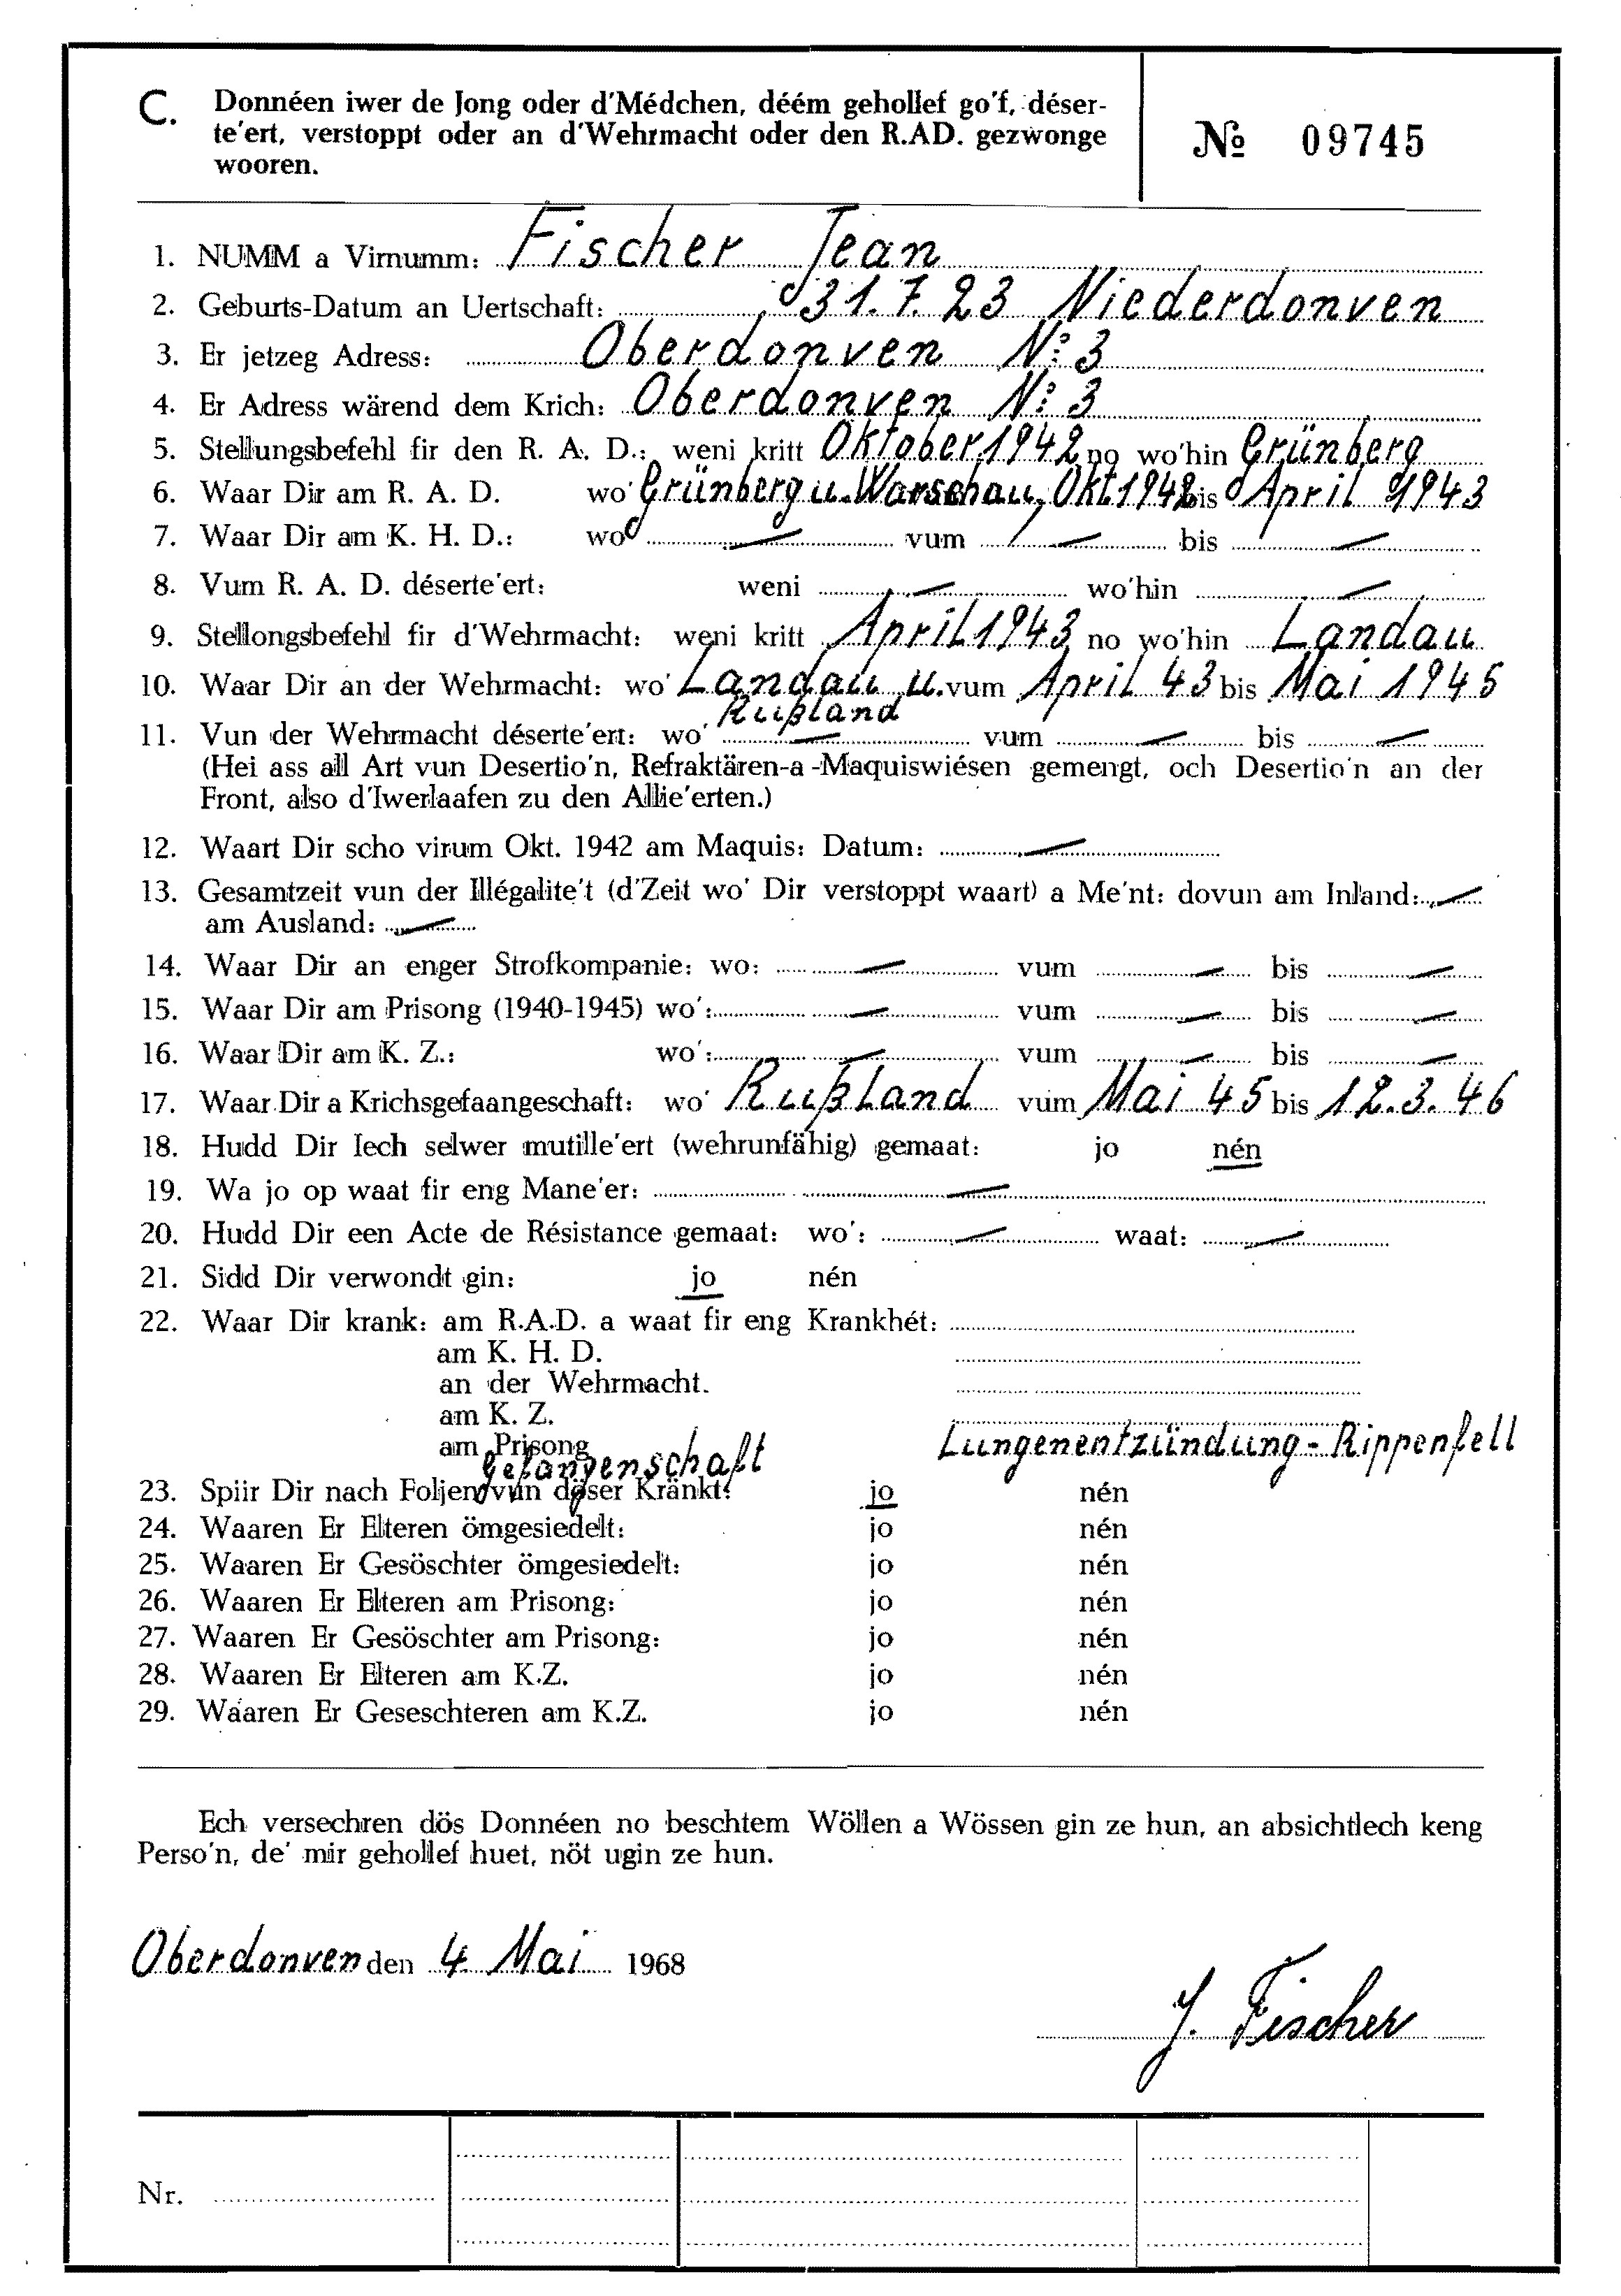 C. Donnéen iwer de Jong oder d'Médchen, déém gehollef go'f, déser-
te'ert, verstoppt oder an d'Wehrmacht oder den R.AD. gezwonge
wooren.
№ 09745
1. NUMM a Virnumm: Fischer Jean
2. Geburts-Datum an Uertschaft: 31. 7. 23 Niederdonven
3. Er jetzeg Adress: Oberdonven N° 3
4. Er Adress wärend dem Krich: Oberdonven N° 3
5. Stellungsbefehl fir den R. A. D.: weni kritt Oktober 1942 no wo'hin Grünberg
6. Waar Dir am R. A. D. wo' Grünberg u. Warschau, Okt 1942 bis April 1943
7. Waar Dir am K. H. D.: wo' — vum — bis —
8. Vum R. A. D. déserte'ert: weni — wo'hin —
9. Stellongsbefehl fir d'Wehrmacht: weni kritt April 1943 no wo'hin Landau
10. Waar Dir an der Wehrmacht: wo' Landau u. vum April 43 bis Mai 1945
Rußland
11. Vun der Wehrmacht déserte'ert: wo' — vum — bis —
(Hei ass all Art vun Desertio'n, Refraktären-a-Maquiswiésen gemengt, och Desertio'n an der
Front, also d'Iwerlaafen zu den Allie'erten.)
12. Waart Dir scho virum Okt. 1942 am Maquis: Datum: —
13. Gesamtzeit vun der Illégalite't (d'Zeit wo' Dir verstoppt waart) a Me'nt: dovun am Inland: —
am Ausland: —
14. Waar Dir an enger Strofkompanie: wo: — vum — bis —
15. Waar Dir am Prisong (1940-1945) wo': — vum — bis —
16. Waar Dir am K. Z.: wo': — vum — bis —
17. Waar Dir a Krichsgefaangeschaft: wo' Rußland vum Mai 45 bis 12. 3. 46
18. Hudd Dir Iech selwer mutille'ert (wehrunfähig) gemaat: jo nén
19. Wa jo op waat fir eng Mane'er: —
20. Hudd Dir een Acte de Résistance gemaat: wo': — waat: —
21. Sidd Dir verwondt gin: jo nén
22. Waar Dir krank: am R.A.D. a waat fir eng Krankhét:
am K. H. D.
an der Wehrmacht.
am K. Z.
am Prisong Lungenentzündung - Rippenfell
Gefangenschaft
23. Spiir Dir nach Foljen vun döser Kränkt: jo nén
24. Waaren Er Elteren ömgesiedelt: jo nén
25. Waaren Er Gesöschter ömgesiedelt: jo nén
26. Waaren Er Elteren am Prisong: jo nén
27. Waaren Er Gesöschter am Prisong: jo nén
28. Waaren Er Elteren am K.Z. jo nén
29. Waaren Er Geseschteren am K.Z. jo nén
Ech versechren dös Donnéen no beschtem Wöllen a Wössen gin ze hun, an absichtlech keng
Perso'n, de' mir gehollef huet, nöt ugin ze hun.
Oberdonven den 4. Mai 1968
J. Fischer
Nr.